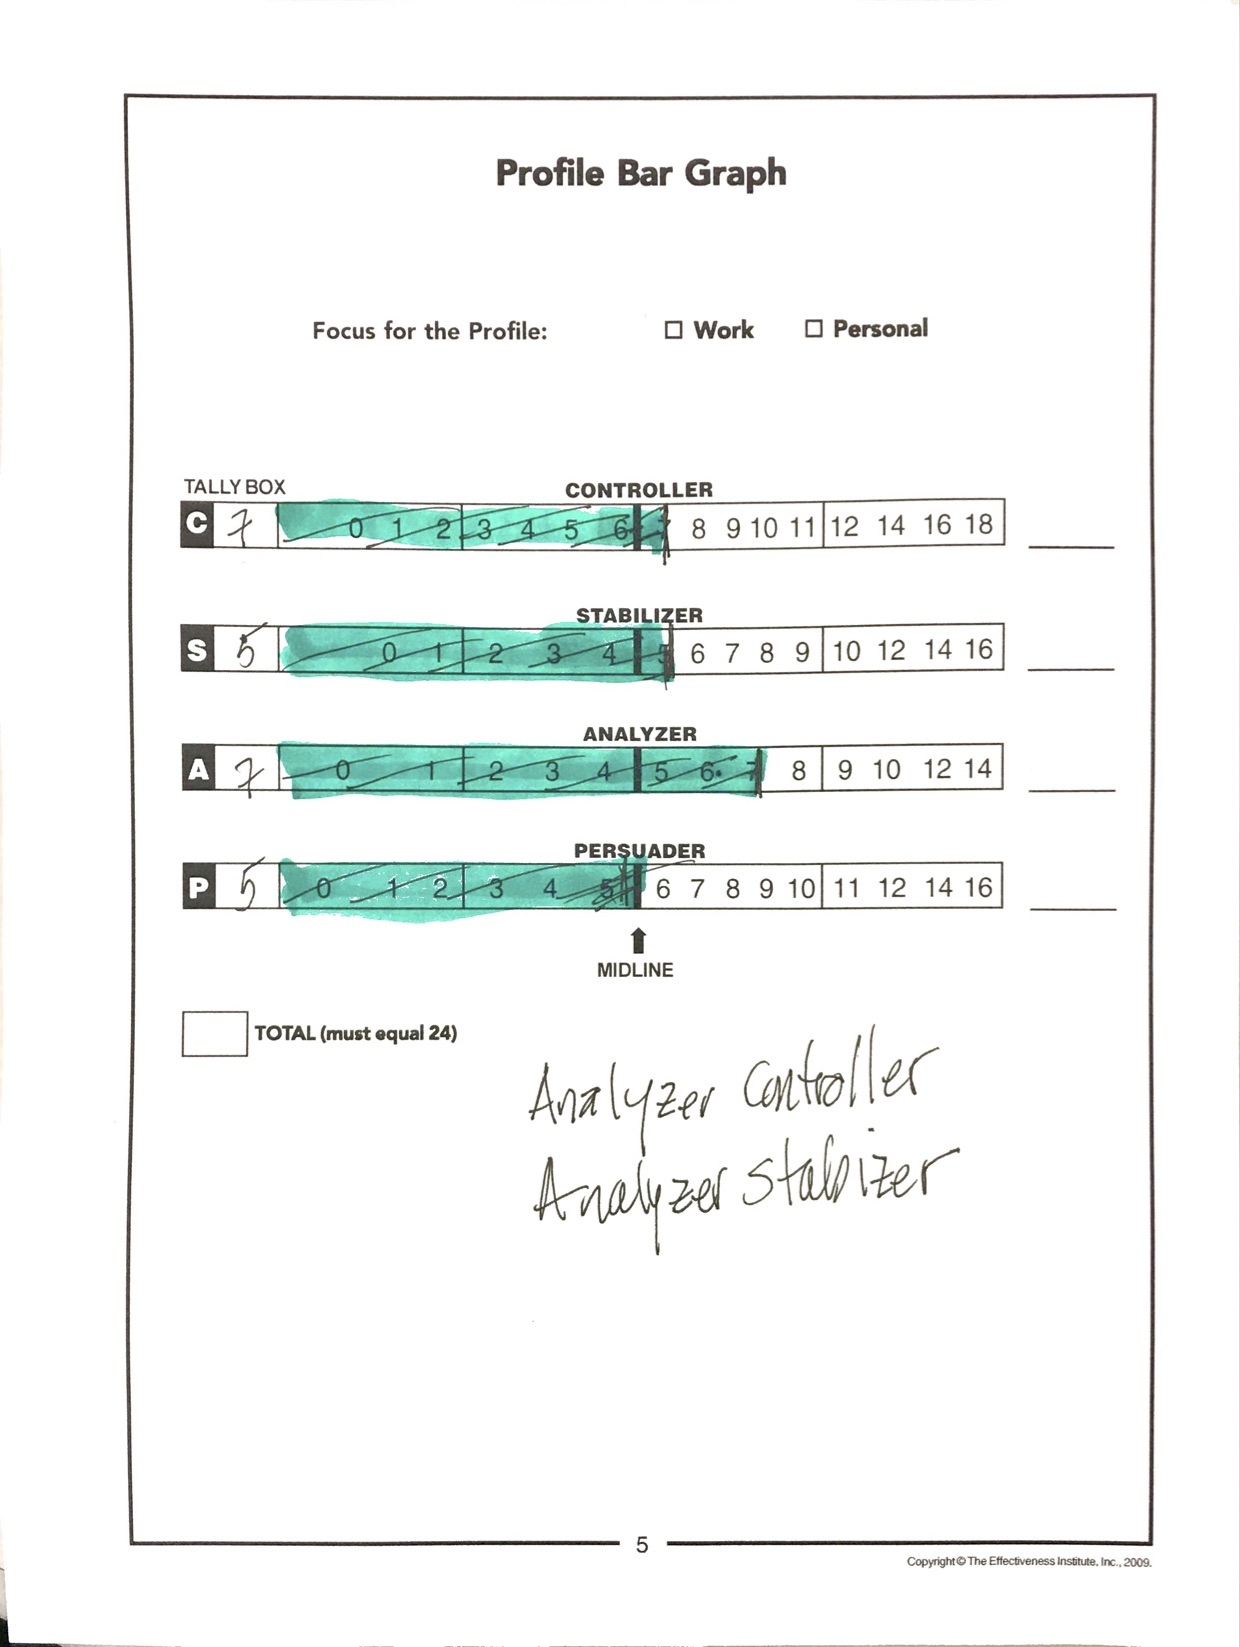 Profile Bar Graph
Focus for the Profile: Work Personal
TALLY BOX CONTROLLER
C 7 0 1 2 3 4 5 6 7 8 9 10 11 12 14 16 18
STABILIZER
S 5 0 1 2 3 4 5 6 7 8 9 10 12 14 16
ANALYZER
A 7 0 1 2 3 4 5 6 7 8 9 10 12 14
PERSUADER
P 5 0 1 2 3 4 5 6 7 8 9 10 11 12 14 16
MIDLINE
TOTAL (must equal 24)
Analyzer Controller
Analyzer Stabizer
5
Copyright © The Effectiveness Institute, Inc., 2009.